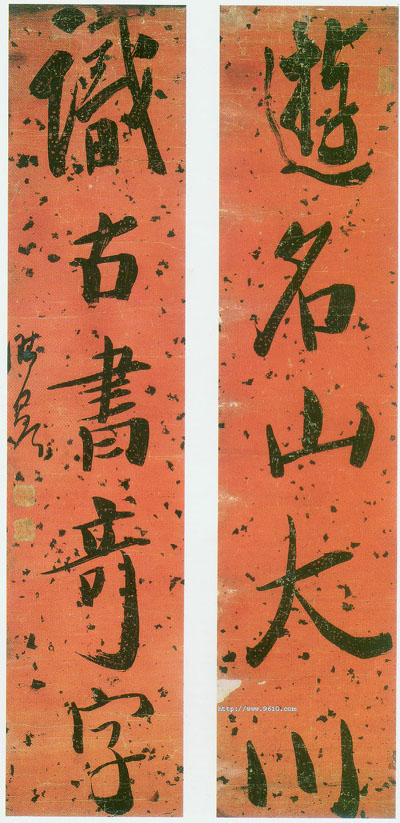 遊名山大川
識古書奇字
http://www.9610.com